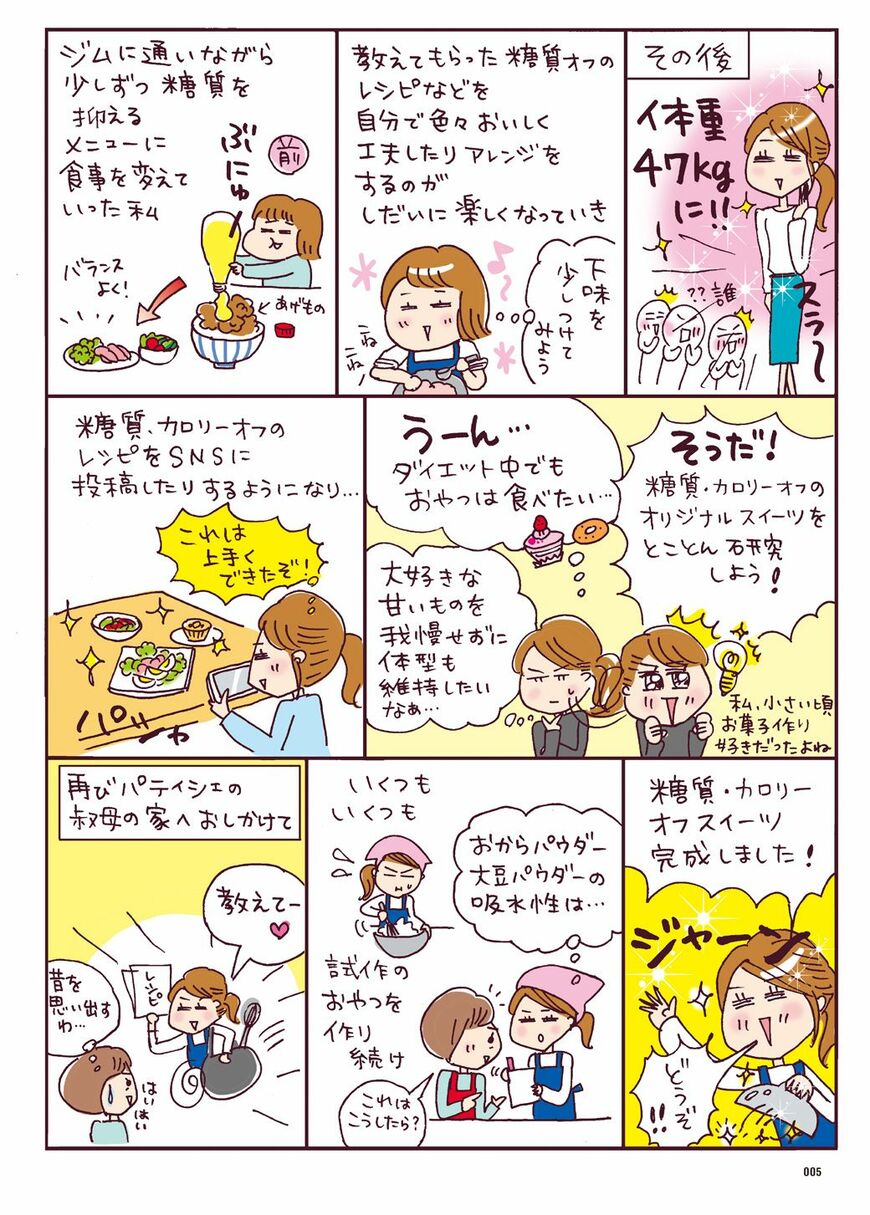 ジムに通いながら
少しずつ糖質を
抑える
メニューに
食事を変えて
いった私
前
ぶにゅー
バランス
よく!
あげもの
教えてもらった糖質オフの
レシピなどを
自分で色々おいしく
工夫したりアレンジを
するのが
しだいに楽しくなっていき
下味を
少しつけて
みよう
こね
こね
その後
体重
47kg
に!!
スラ〜
??誰
糖質、カロリーオフの
レシピをSNSに
投稿したりするようになり…
これは
上手く
できたぞ!
パシャ
うーん…
ダイエット中でも
おやつは食べたい…
大好きな
甘いものを
我慢せずに
体型も
維持したい
なぁ…
そうだ!
糖質・カロリーオフの
オリジナルスイーツを
とことん研究
しよう!
私、小さい頃
お菓子作り
好きだったよね
再びパティシエの
叔母の家へおしかけて
教えてー
レシピ
昔を
思い出す
わ…
はいはい
いくつも
いくつも
試作の
おやつを
作り
続け
おからパウダー
大豆パウダーの
吸水性は…
これは
こうしたら?
糖質・カロリー
オフスイーツ
完成しました!
ジャーン
どうぞ
!!
005